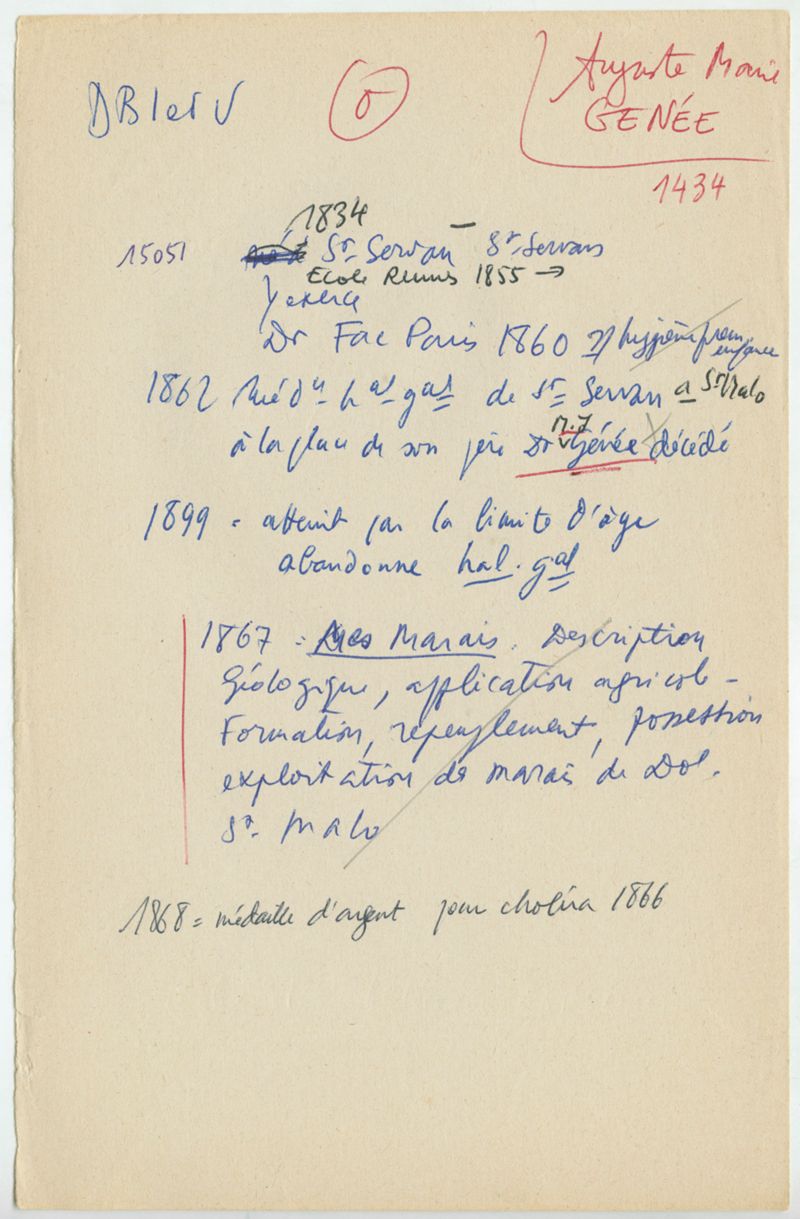 DB I et V
Auguste Marie
GENÉE
1434
1834 –
15051 St. Servan St-Servan
Ecole Rennes 1855 →
y exerce
Dr Fac Paris 1860 hygiène prem.
enfance
1862 Méd n hal gal de St Servan à St Malo
à la place de son père Dr Génée décédé
1899 = atteint par la limite d'âge
abandonne hal. gal
1867 = Marais. Description
Géologique, application agricole –
Formation, repeuplement, possession
exploitation de marais de Dol.
St. Malo
1868 = médaille d'argent pour choléra 1866